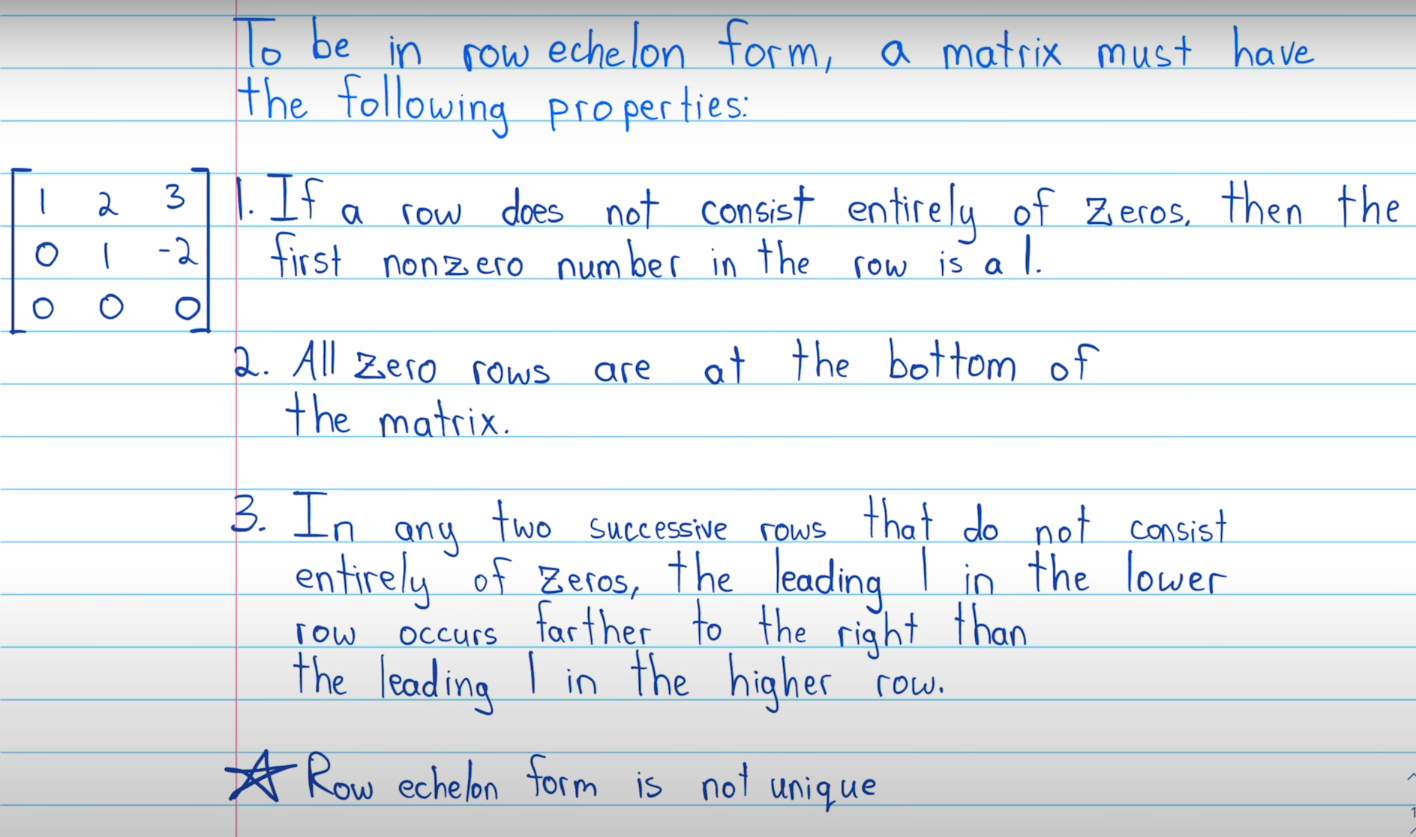 To be in row echelon form, a matrix must have
the following properties:
1 2 3
0 1 -2
0 0 0
1. If a row does not consist entirely of zeros, then the
first nonzero number in the row is a 1.
2. All zero rows are at the bottom of
the matrix.
3. In any two successive rows that do not consist
entirely of zeros, the leading 1 in the lower
row occurs farther to the right than
the leading 1 in the higher row.
☆ Row echelon form is not unique